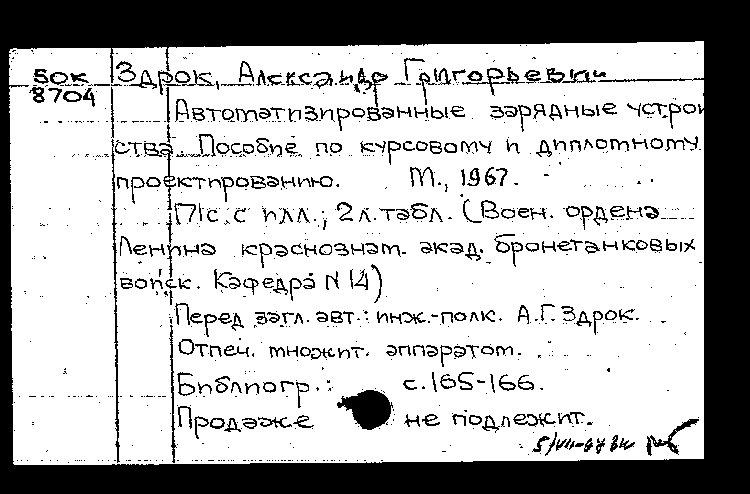 50к Здрок, Александр Григорьевич
8704
Автоматизированные зарядные устрой
ства. Пособие по курсовому и дипломному
проектированию. М., 1967.
171с. с илл.; 2л.табл. (Воен. ордена
Ленина краснознам. акад. бронетанковых
войск. Кафедра N 14)
Перед загл. авт.: инж.-полк. А.Г. Здрок.
Отпеч. множит. аппаратом.
Библиогр.: с.165-166.
Продаже не подлежит.